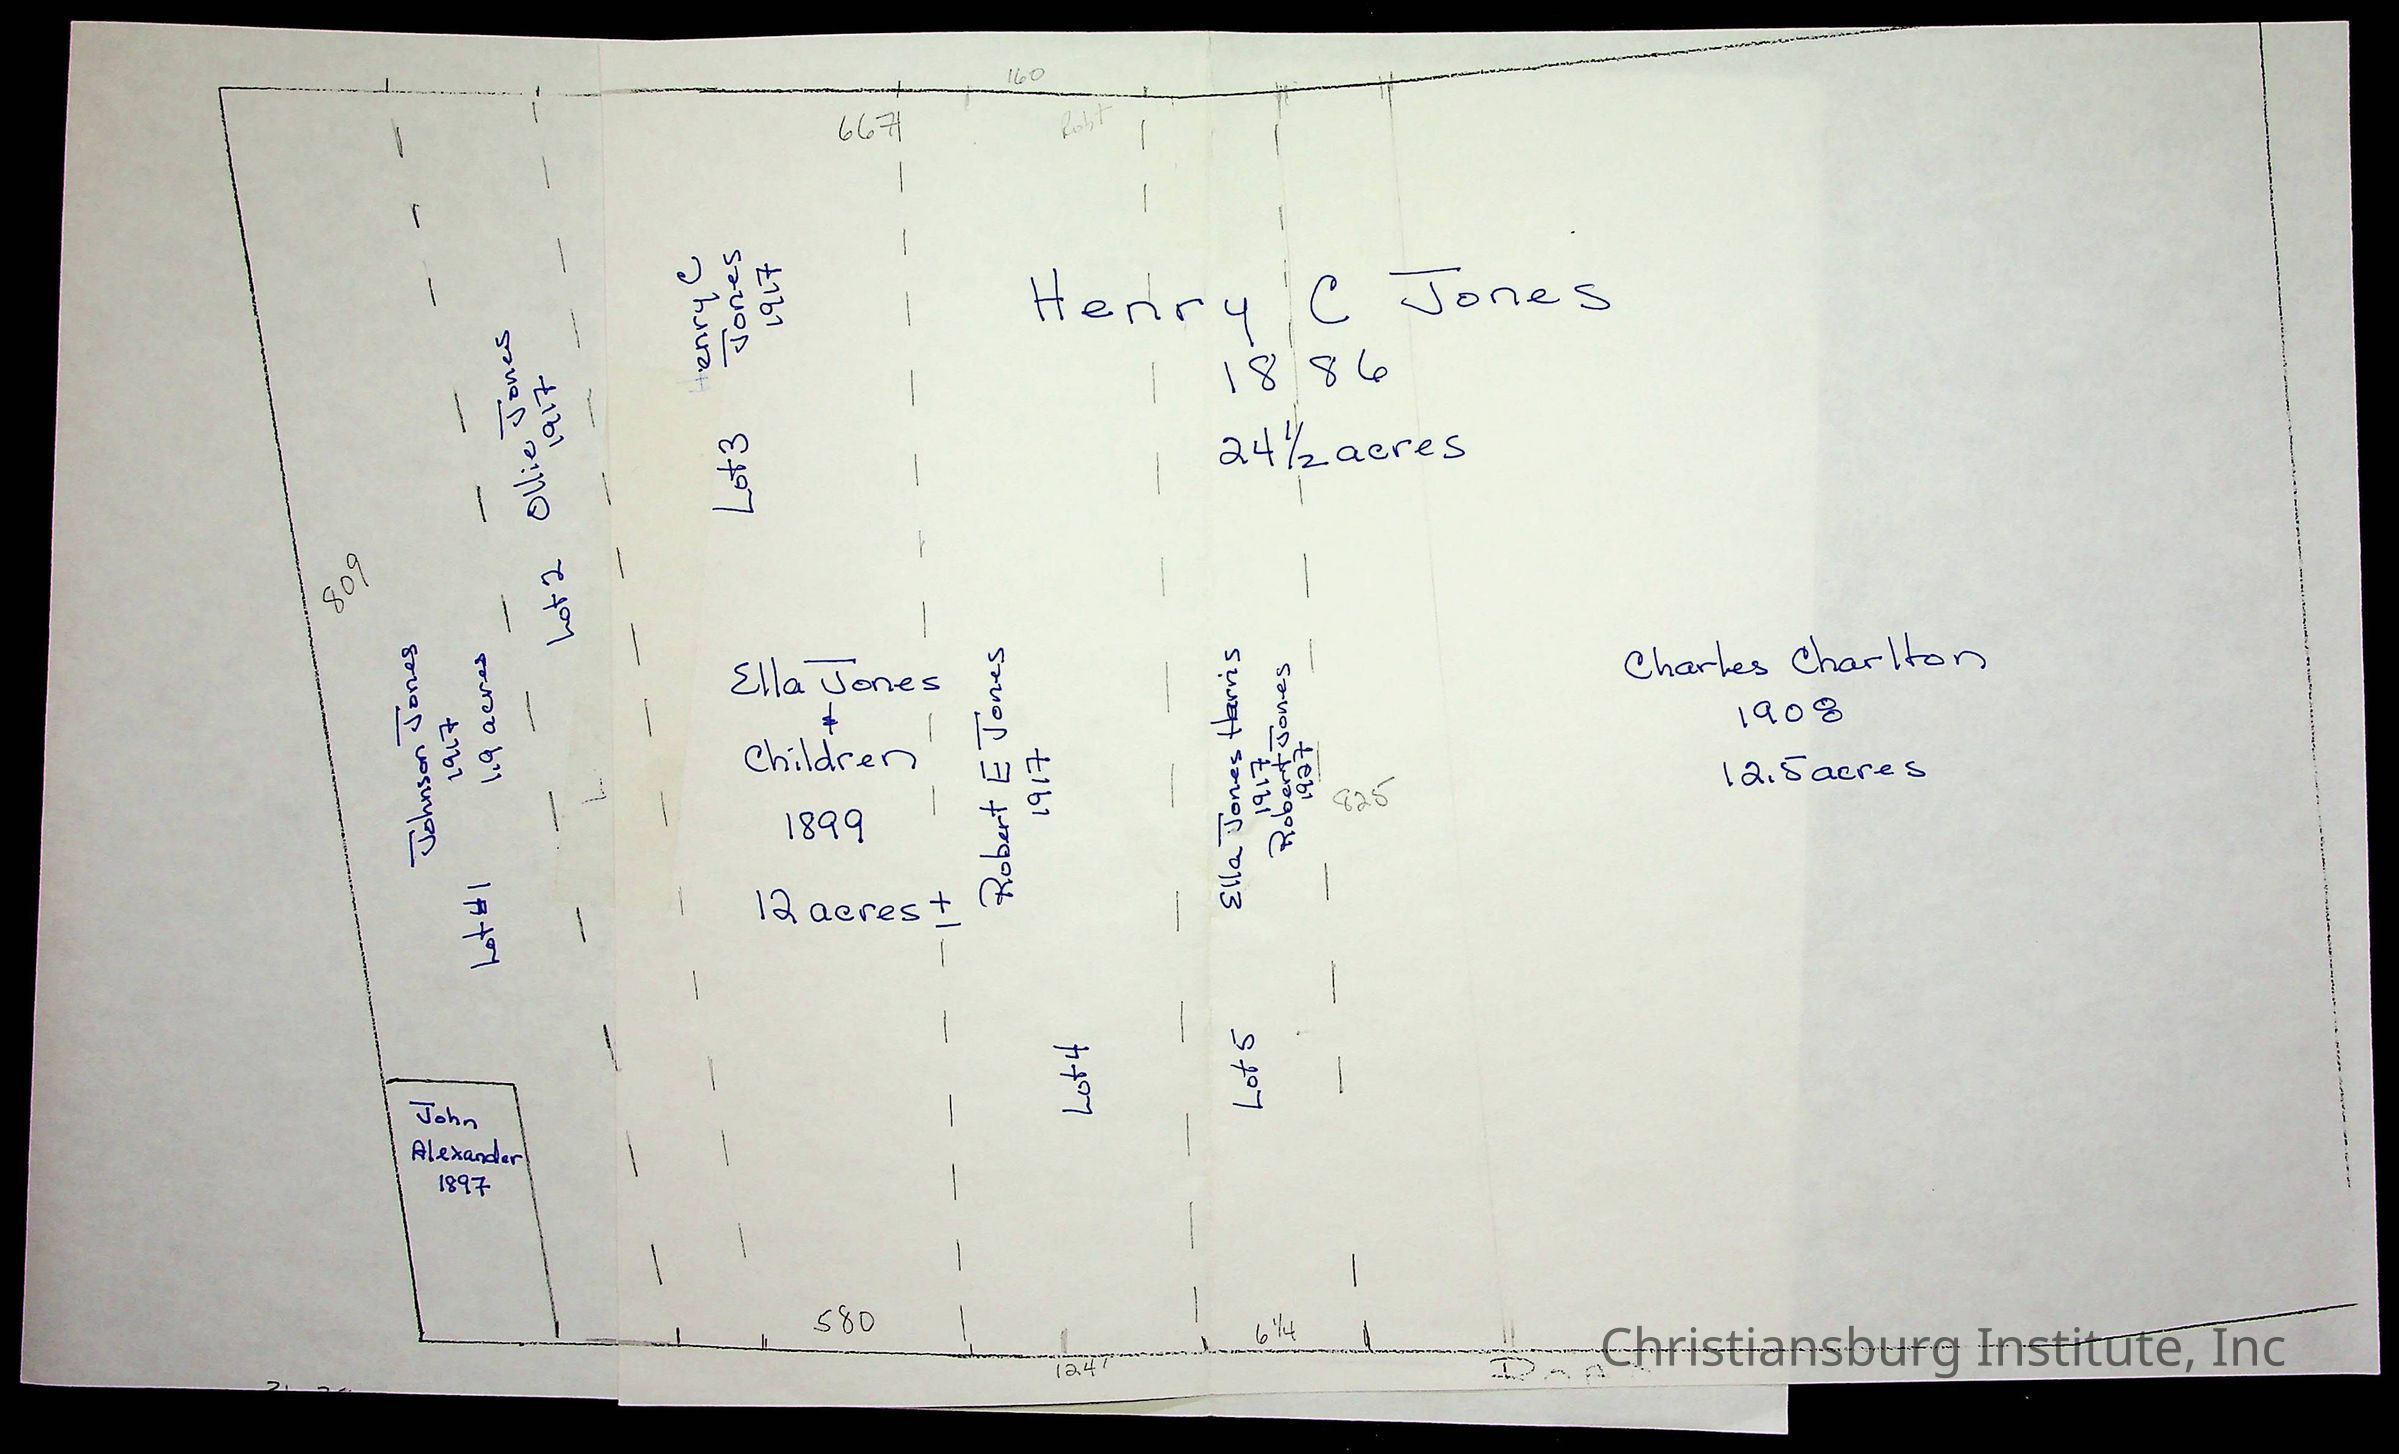 160
667
Robt
Henry C
Jones
1917
Lot 3
Henry C Jones
1886
24 1/2 acres
Ollie Jones
1917
Lot 2
809
Johnson Jones
1917
1.9 acres
Lot #1
Ella Jones
+
Children
1899
12 acres +
Robert E Jones
1917
Lot 4
Ella Jones Harris
1917
Robert Jones
1927
Lot 5
825
Charles Charlton
1908
12.5 acres
John
Alexander
1897
580
6 1/4
124'
Christiansburg Institute, Inc